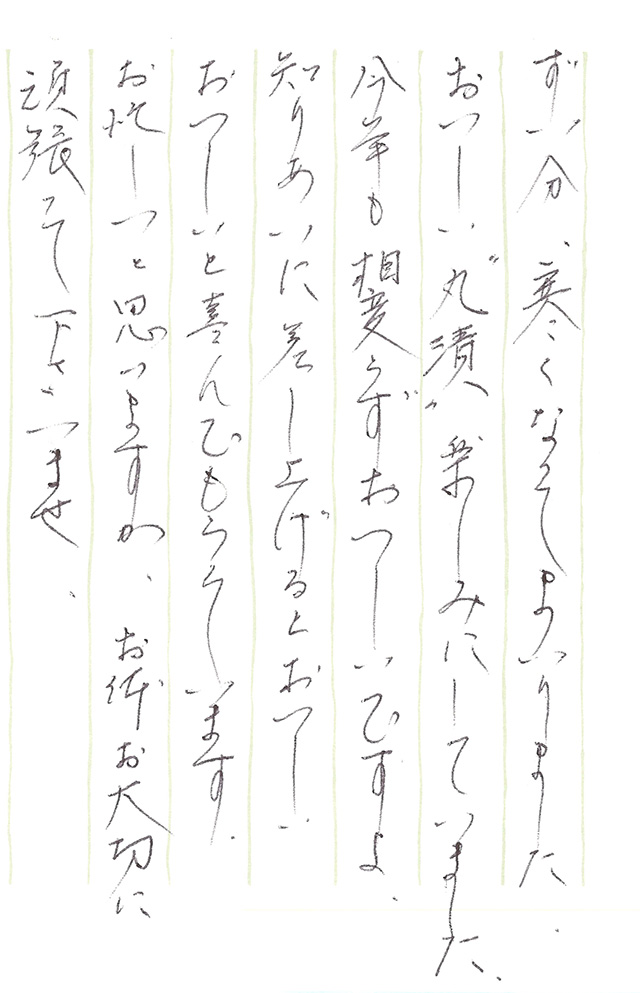 ずい分、寒くなってまいりました。
おいしい〝丸漬〟楽しみにしていました。
今年も相変らずおいしいですよ。
知りあいに差し上げるとおいしい
おいしいと喜んでもらっています。
お忙しいと思いますが、お体お大切に
頑張って下さいませ。